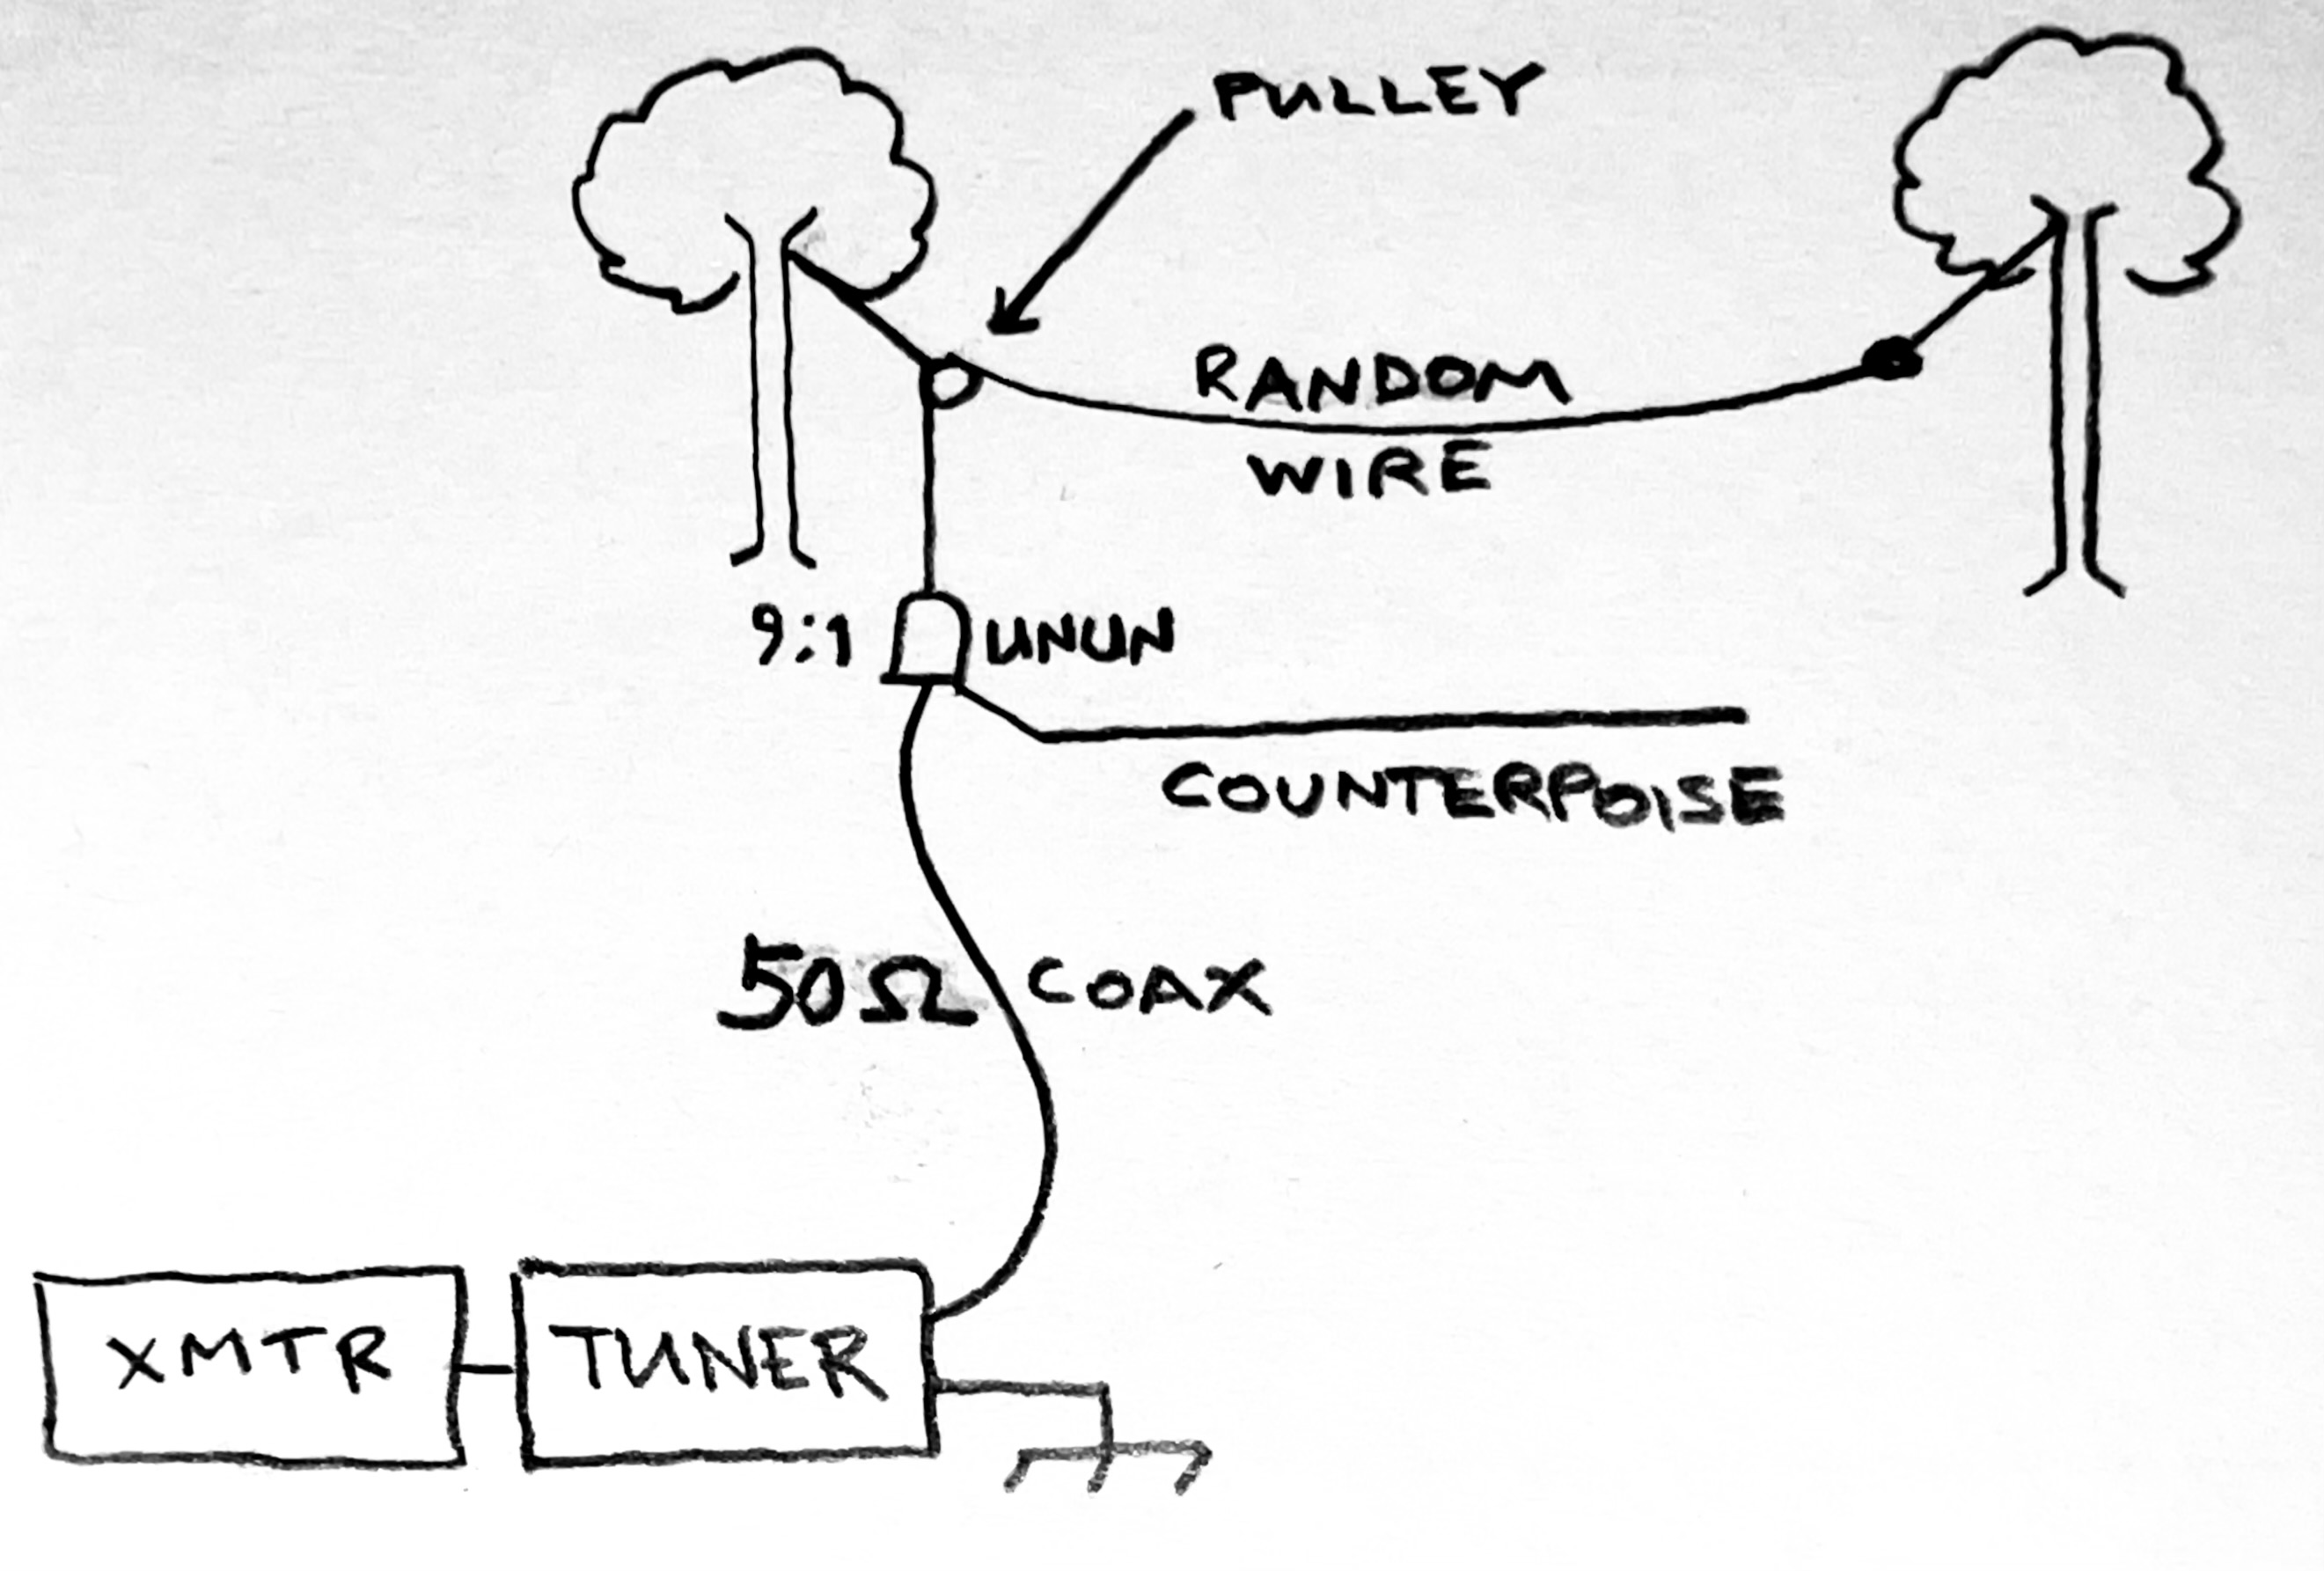 PULLEY
RANDOM
WIRE
9:1 UNUN
COUNTERPOISE
50Ω COAX
XMTR
TUNER